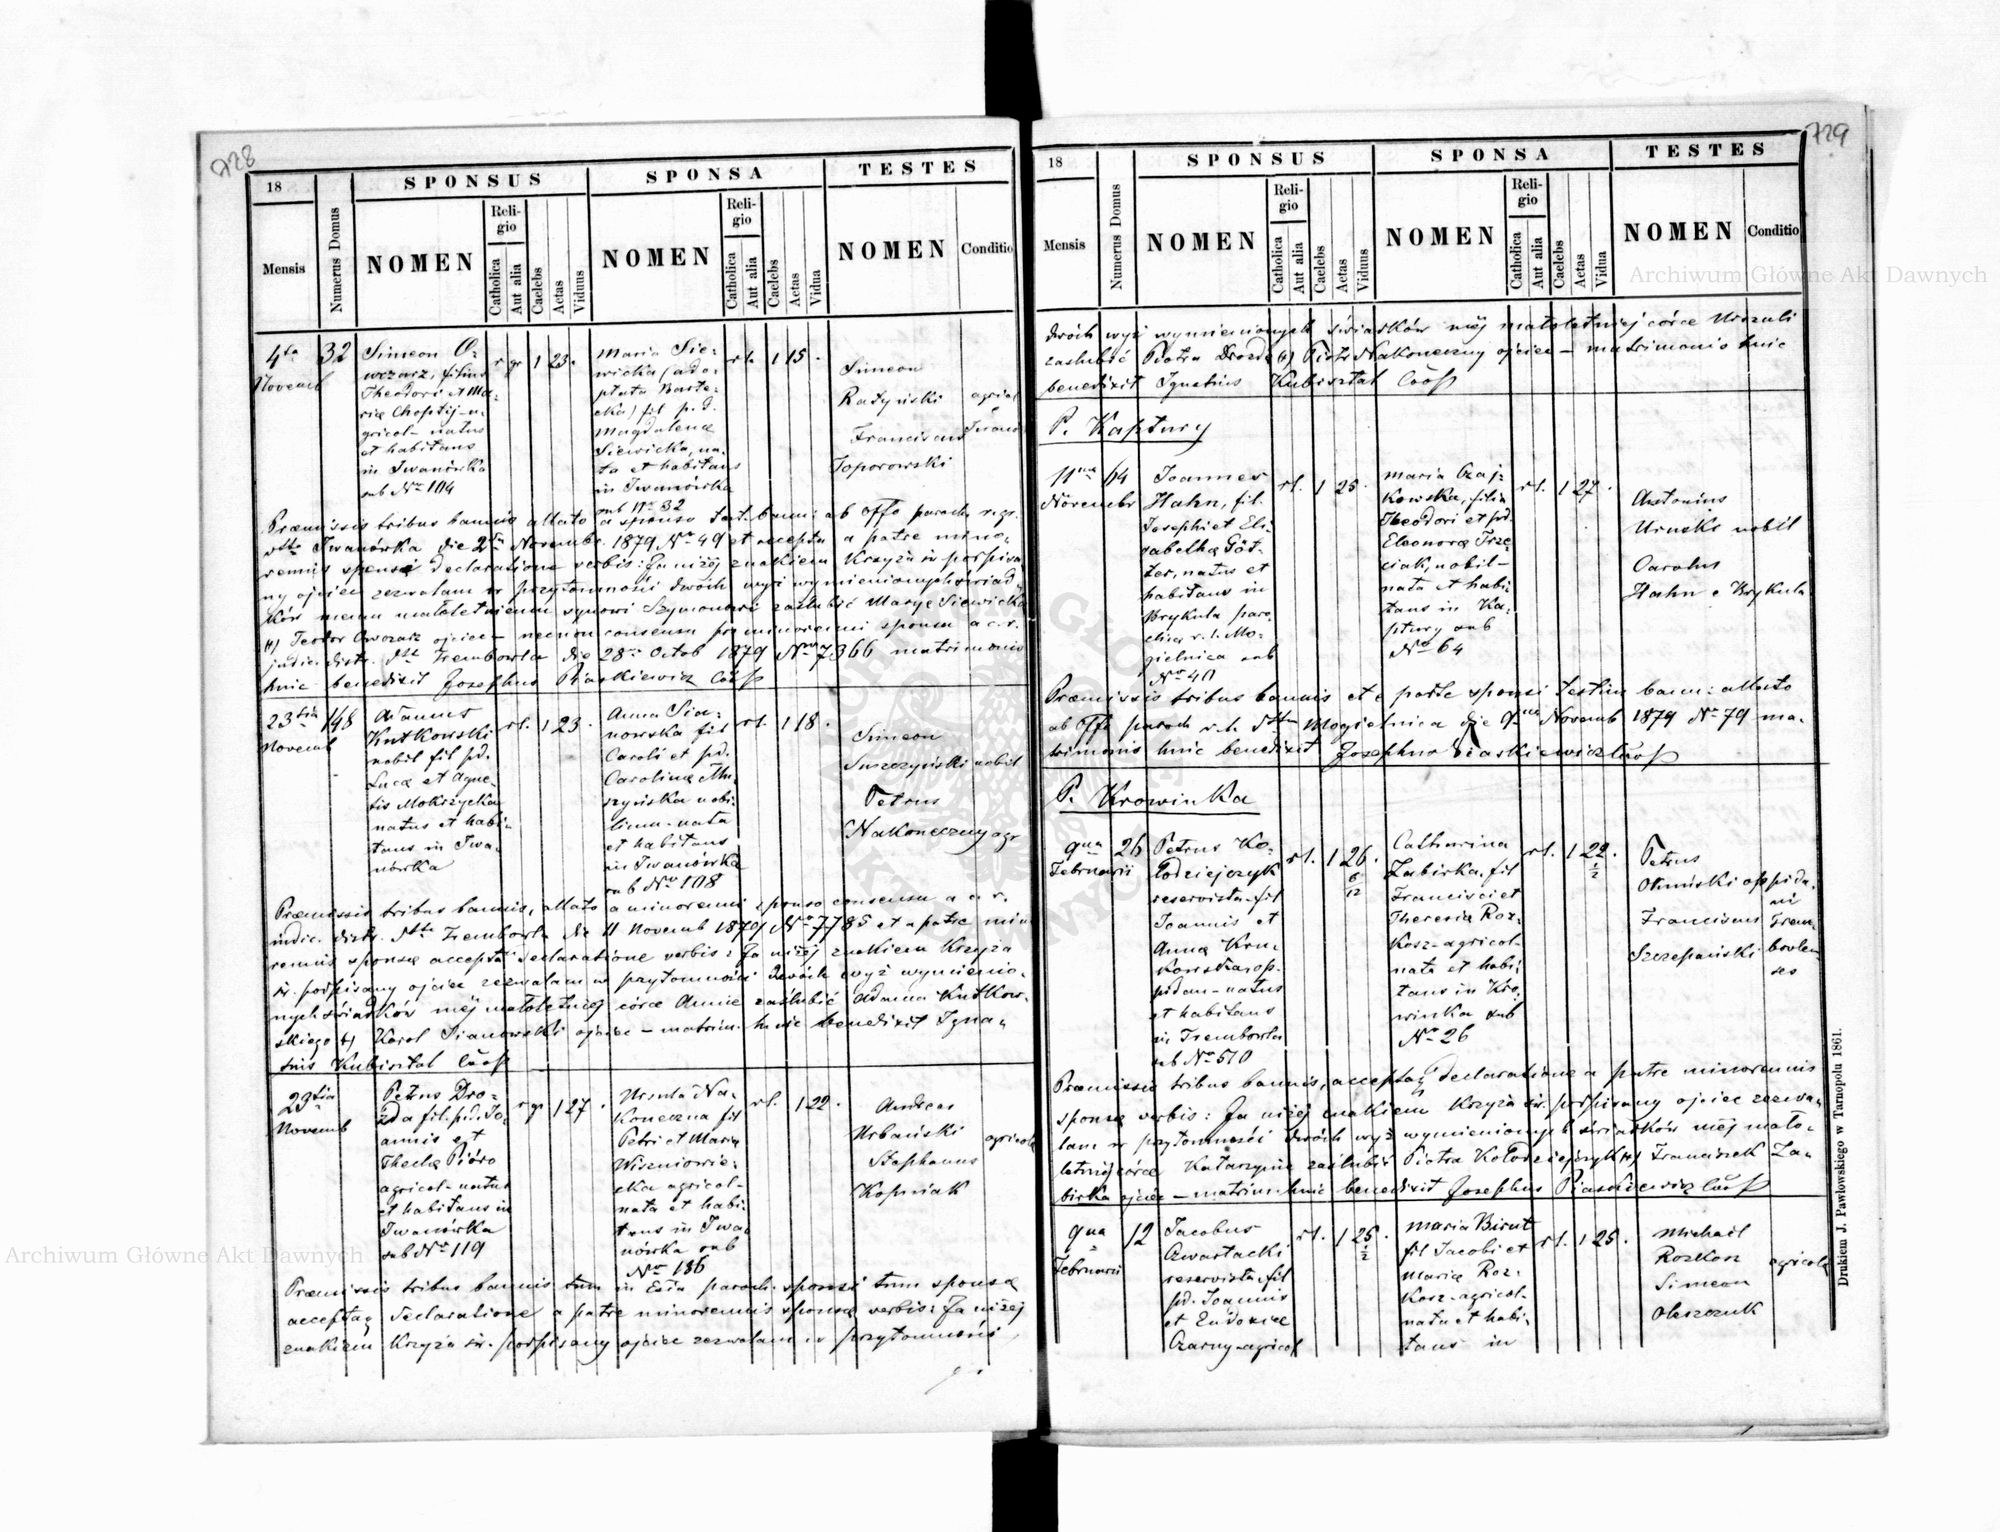 928
18
Mensis
Numerus Domus
SPONSUS
NOMEN
Religio
Catholica
Aut alia
Caelebs
Aetas
Viduus
SPONSA
NOMEN
Religio
Catholica
Aut alia
Caelebs
Aetas
Vidua
TESTES
NOMEN
Conditio
4ta
Novemb
32
Simeon O-
wczarz, filius
Theodori et Ma-
riæ Choptij - a-
gricol - natus
et habitans
in Iwanówka
sub Nro 104
r gr 1 23.
Maria Sie-
wicka (ado-
ptata Barte-
cka) fil p.d.
Magdalenæ
Siewicka, na-
ta et habitans
in Iwanówka
sub Nro 32
rl. 1 15.
Simeon
Ratyński
Franciscus
Toporowski
agricol
Iwanó
Præmissis tribus bannis allato a sponso test. bann: ab offo paroch. r.gr.
Iwanówka die 2da Novembr. 1879 Nro 49 et accepta a patre mino-
rennis sponsi declaratione verbis: Ja niżej znakiem Krzyża św podpisa-
ny ojciec zezwalam w przytomności dwóch wyż wymienionych świad-
ków memu małoletniemu synowi Szymonowi zaślubić Maryę Siewicką
(+) Teodor Owczarz ojciec - necnon consensu pro minorenni sponsa a c.r.
judic. distr. Trembowla die 28va Octob 1879 Nro 7366 matrimonio
huic benedixit Josephus Piaskiewicz Coop
23tia
Novemb
148
Adamus
Kutkowski
nobil fil pd.
Lucæ et Agne-
tis Mokrzycka
natus et habi-
tans in Iwa-
nówka
rl. 1 23.
Anna Sia-
nowska fil
Caroli et pd.
Carolinæ Mu-
szyńska nobi-
lium - nata
et habitans
in Iwanówka
sub Nro 108
rl. 1 18.
Simeon
Suszczyński nobil
Petrus
Nakoneczny agr
Præmissis tribus bannis, allato a minorenni sponso consensu a c. r.
indic. distr. Trembowla die 11 Novemb 1879 Nro 7785 et a patre mino-
rennis sponsæ accepta declaratione verbis: Ja niżej znakiem Krzyża
św. podpisany ojciec zezwalam w przytomności dwóch wyż wymienio-
nych świadków mej małoletniej córce Annie zaślubić Adama Kutkow-
skiego (+) Karol Sianowski ojciec - matrim. huic benedixit Igna-
tius Kubisztal Coop
23tia
Novemb
Petrus Dro-
zda fil. p.d. Jo-
annis et
Theclæ Pióro
agricol - natus
et habitans in
Iwanówka
sub Nro 119
r gr 1 27.
Ursula Na-
koneczna fil
Petri et Mariæ
Wiszniowie-
cka agricol -
nata et habi-
tans in Iwa-
nówka sub
Nro 136
rl. 1 22.
Andreas
Urbański
Stephanus
Kopniak
agricolæ
Præmissis tribus bannis tum in Esia paroch. sponsi tum sponsæ
acceptaq declaratione a patre minorennis sponsæ verbis: Ja niżej
znakiem Krzyża św. podpisany ojciec zezwalam w przytomności
729
18
Mensis
Numerus Domus
SPONSUS
NOMEN
Religio
Catholica
Aut alia
Caelebs
Aetas
Viduus
SPONSA
NOMEN
Religio
Catholica
Aut alia
Caelebs
Aetas
Vidua
TESTES
NOMEN
Conditio
dwóch wyż wymienionych świadków mej małoletniej córce Urszuli
zaślubić Piotra Drozdę (+) Piotr Nakoneczny ojciec - matrimonio huic
benedixit Ignatius Kubisztal Coop
P. Kaptury
11ma
Novembr
64
Joannes
Hahn, fil.
Josephi et Eli-
sabethæ Göt-
ter, natus et
habitans in
Brykula paro-
chiæ r.l. Mo-
gielnica sub
Nro 40
rl. 1 25.
Maria Czaj-
kowska, filia
Theodori et pd.
Eleonoræ Trze-
ciak, nobil -
nata et habi-
tans in Ka-
ptury sub
Nro 64
rl. 1 27.
Antonius
Uruski nobil
Carolus
Hahn e Brykula
Præmissis tribus bannis et e parte sponsi testim bann: allato
ab offo paroch r.l. Mogielnica die 9na Novemb 1879 Nro 79 ma-
trimonio huic benedixit Josephus Piaskiewicz Coop
P. Krowinka
9na
Februarii
26
Petrus Ko-
łodziejczyk
reservista fil
Joannis et
Annæ Kru-
kowska op-
pidan - natus
et habitans
in Trembowla
sub Nro 510
rl. 1 26. 6/12
Catharina
Zabirka, fil
Francisci et
Theresiæ Roz-
kosz - agricol -
nata et habi-
tans in Kro-
winka sub
Nro 26
rl. 1 22. 1/2
Petrus
Franciscus
Szczepański
oppida-
ni
Trem-
bowlen-
ses
Præmissis tribus bannis, acceptaq declaratione a patre minorennis
sponsæ verbis: Ja niżej znakiem Krzyża św. podpisany ojciec zezwa-
lam w przytomności dwóch wyż wymienionych świadków mej mało-
letniej córce Katarzynie zaślubić Piotra Kołodziejczyk (+) Franciszek Za-
birka ojciec - matrim. huic benedixit Josephus Piaskiewicz Coop
9na
Februarii
12
Jacobus
Czwartacki
reservista fil
pd. Joannis
et Eudoxiæ
Czarny - agricol
rl. 1 25 1/2.
Maria Birut
fil Jacobi et
Mariæ Roz-
kosz - agricol -
nata et habi-
tans in
rl. 1 25.
Michaël
Rozkosz
Simeon
Oleszczuk
agricolæ
Drukiem J. Pawłowskiego w Tarnopolu 1861.
Archiwum Główne Akt Dawnych
Archiwum Główne Akt Dawnych